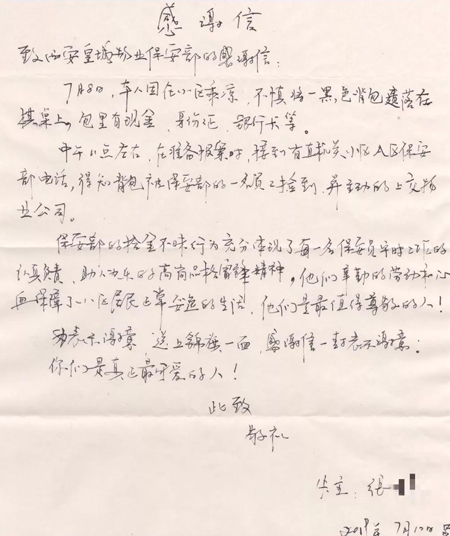 感谢信
致西安皇城物业保安部的感谢信：
7月8日，本人因在小区乘凉，不慎将一黑色背包遗落在
棋桌上。包里有现金，身份证，银行卡等。
中午11点左右，在准备报案时，接到有直机关小区A区保安
部电话，得知背包被保安部的一名员工捡到，并主动的上交物
业公司。
保安部的拾金不昧行为充分体现了每一名保安员平时工作的
认真负责，助人为乐的高尚品格雷锋精神。他们辛勤的劳动和心
血保障了小区居民正常安逸的生活，他们是最值得尊敬的人！
为表示谢意 送上锦旗一面，感谢信一封表示谢意：
你们是真正最可爱的人！
此致
敬礼
失主：张
7月12日